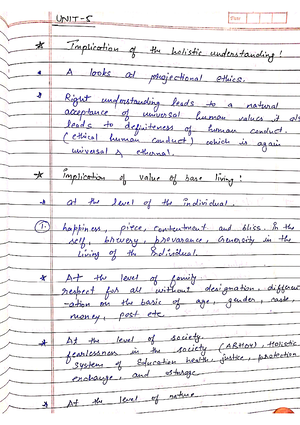 UNIT-5
Date
* Implication of the holistic understanding!
* A looks at projectional ethics.
* Right understanding leads to a natural
acceptance of universal human values it als
leads to definiteness of human conduct.
(ethical human conduct) which is again
universal & ethernal.
* Implication of value of base living!
* at the level of the individual.
1. happiness, piece, contentment and bliss. In the
self, brevery, prevarance, Generosity in the
living of the individual.
* At the level of family
respect for all without designation, different
-ation on the basic of age, gender, caste,
money, post etc.
* At the level of society.
fearlessness in the society (ABHAY), Holistic
system of Education health, justice, protection
exchange, and storage.
* At the level of nature